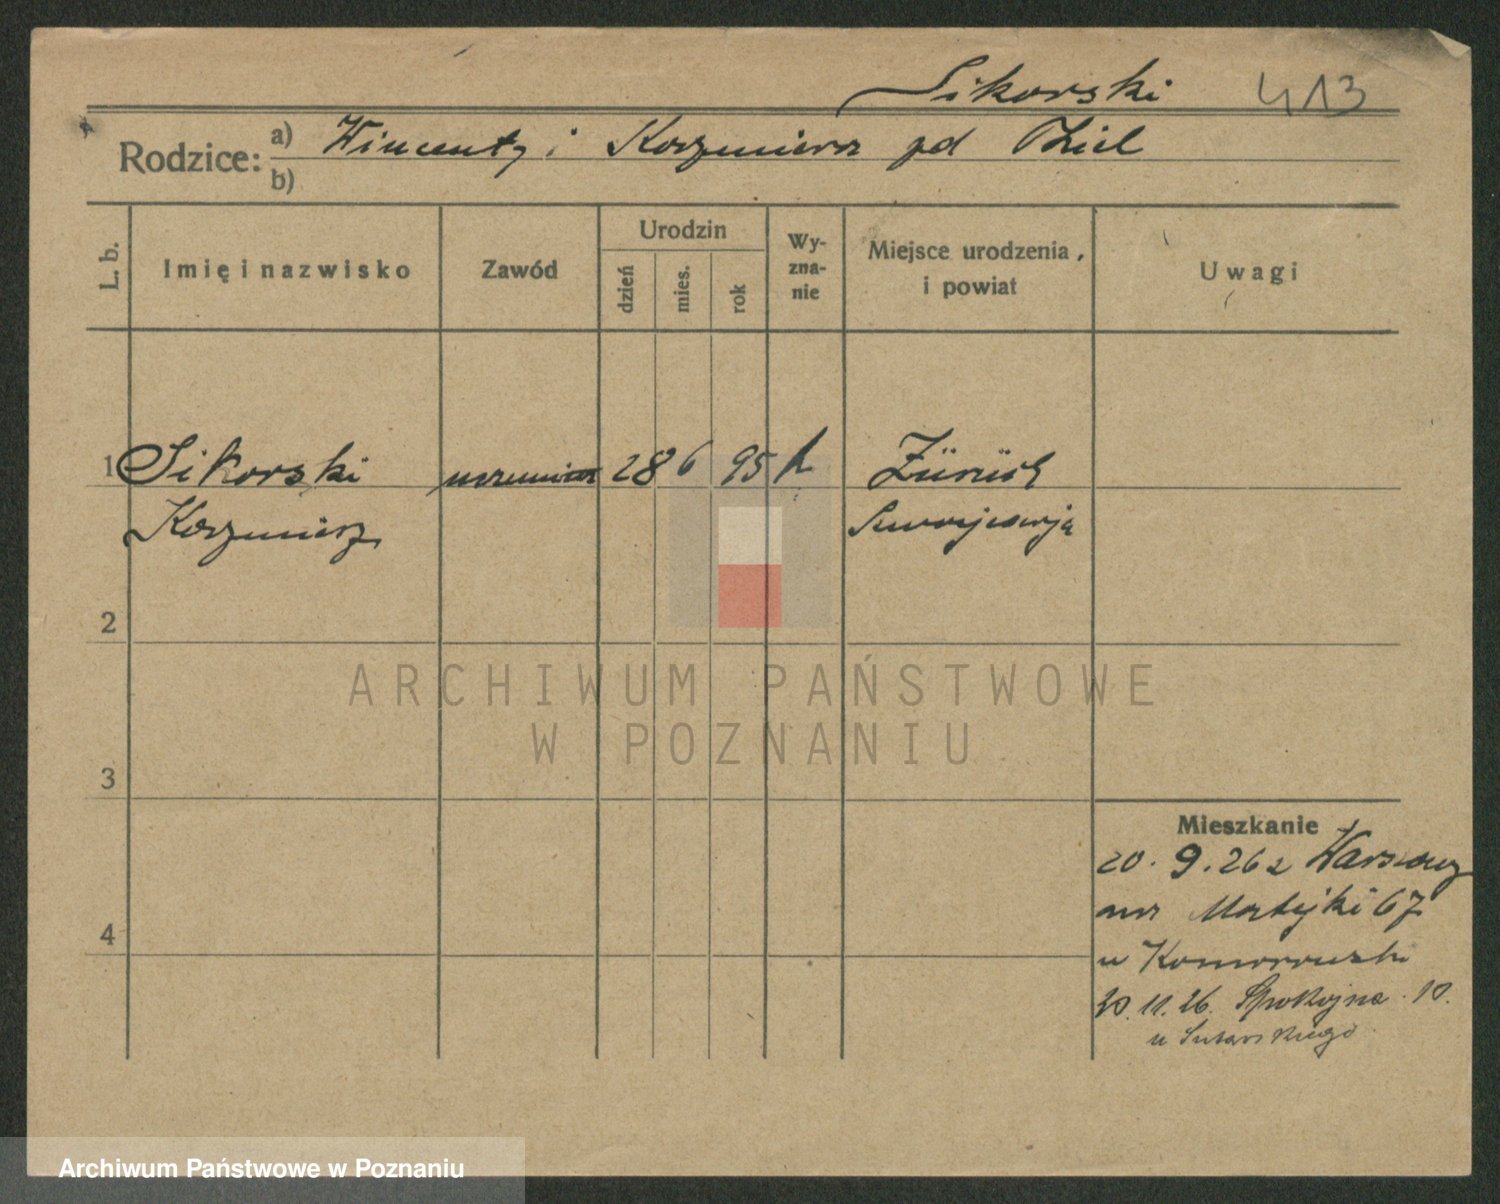 Sikorski 413
Rodzice: a) Wincenty i Kazimiera zd Thiel
b)
L. b. Imię i nazwisko Zawód Urodzin dzień mies. rok Wyznanie Miejsce urodzenia, i powiat Uwagi
1 Sikorski 28 6 95 k Zürich
Kazimierz Szwajcarja
2
ARCHIWUM PAŃSTWOWE
W POZNANIU
3
Mieszkanie
20. 9. 26 z Warszawy
Matejki 67
4
u Komorowski
30. 11. 26. Spokojna 10.
u
Archiwum Państwowe w Poznaniu